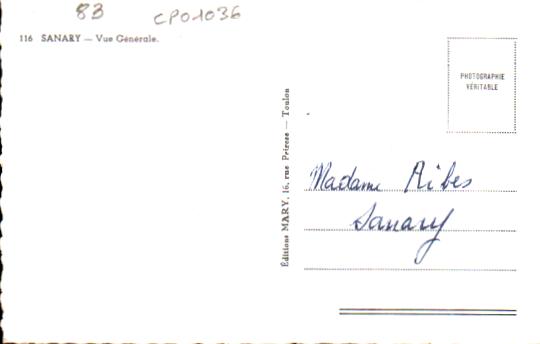 83 CP01036
116 SANARY — Vue Générale.
PHOTOGRAPHIE
VÉRITABLE
Éditions MARY, 16, rue Prirese — Toulon
Madame Ribes
Sanary